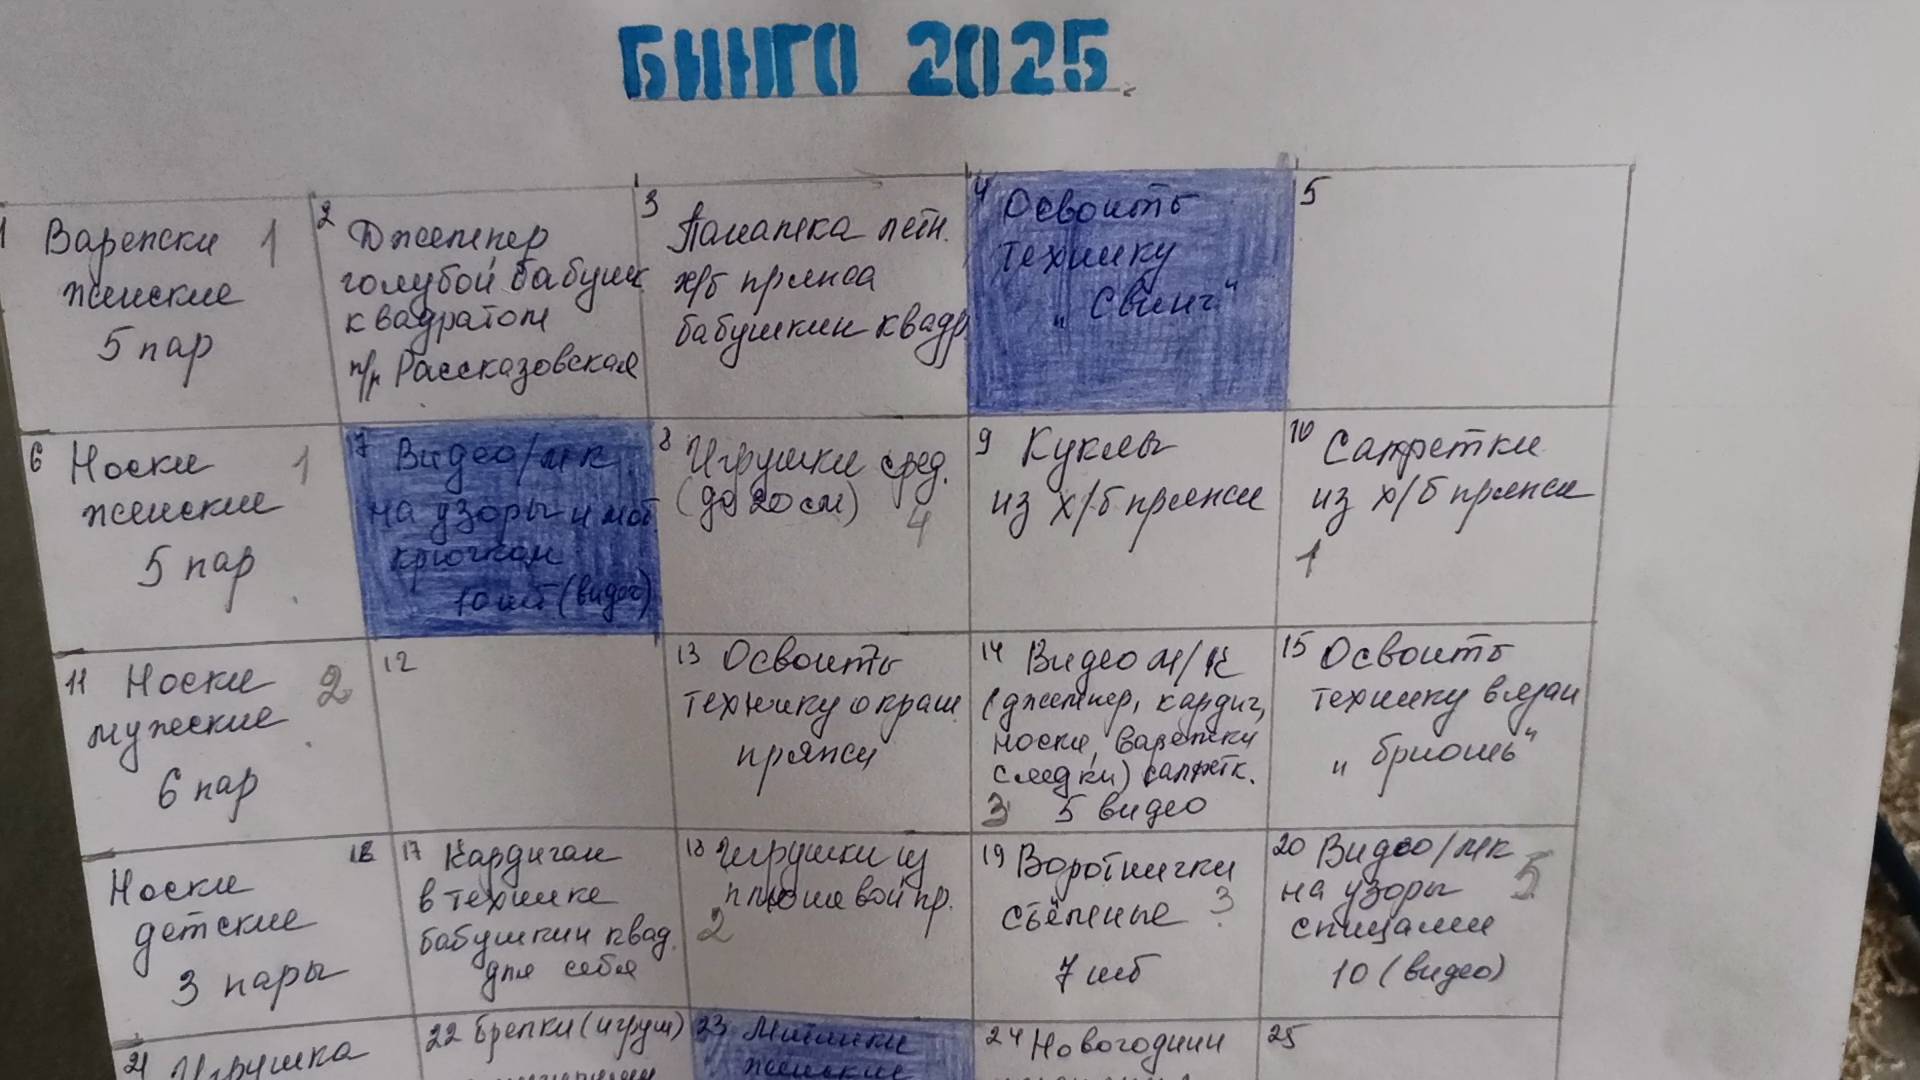 БИНГО 2025
1 Варежки 1
женские
5 пар
2 Джемпер
голубой бабушк
квадратом
пр/ Рассказовская
3 Панамка летн.
х/б пряжа
бабушкин квадр
4 Освоить
технику
„Свинг"
5
6 Носки 1
женские
5 пар
7 Видео/мк
на узоры и мот
крючком
10 шт (видео)
8 Игрушки сред.
(до 20 см)
4
9 Куклы
из х/б пряжи
10 Салфетки
из х/б пряжи
1
11 Носки 2
мужские
6 пар
12
13 Освоить
технику окраш.
пряжи
14 Видео м/к
(джемпер, кардиг,
носки, варежки
следки) салфетк.
3 5 видео
15 Освоить
технику вязан
„бриошь"
16
Носки
детские
3 пары
17 Кардиган
в технике
бабушкин квад.
для себя
18 Игрушки из
плюшевой пр.
2
19 Воротнички
съёмные 3
7 шт
20 Видео/мк 5
на узоры
спицами
10 (видео)
21 Игрушка
22 Брелки (игруш)
23 Митенки
женские
24 Новогодний
25